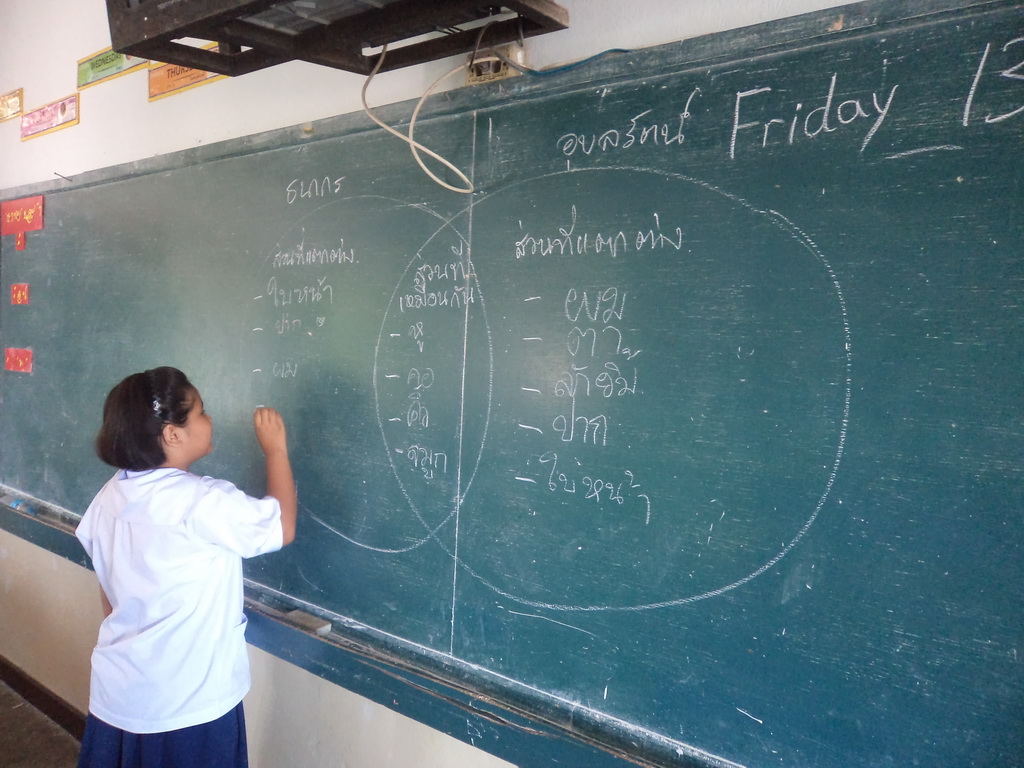 WEDNESDAY
THURS
อุบลรัตน์ Friday 13
ธนากร
ส่วนที่แตกต่าง
- ใบหน้า
- ปาก
- ผม
ส่วนที่
เหมือนกัน
- หู
- คอ
- คิ้ว
- จมูก
ส่วนที่แตกต่าง
- ผม
- ตา
- ลักยิ้ม
- ปาก
- ใบหน้า